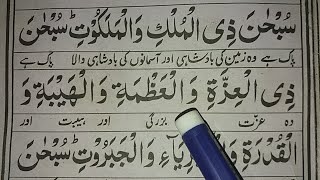 سُبْحٰنَ ذِی الْمُلْكِ وَالْمَلَكُوْتِ ؕ سُبْحٰنَ
پاک ہے وہ زمین کی بادشاہی اور آسمانوں کی بادشاہی والا پاک ہے
ذِی الْعِزَّةِ وَالْعَظَمَةِ وَالْهَيْبَةِ وَ
وہ عزت بزرگی اور ہیبت اور
الْقُدْرَةِ وَالْجَبَرُوْتِ ؕ سُبْحٰنَ